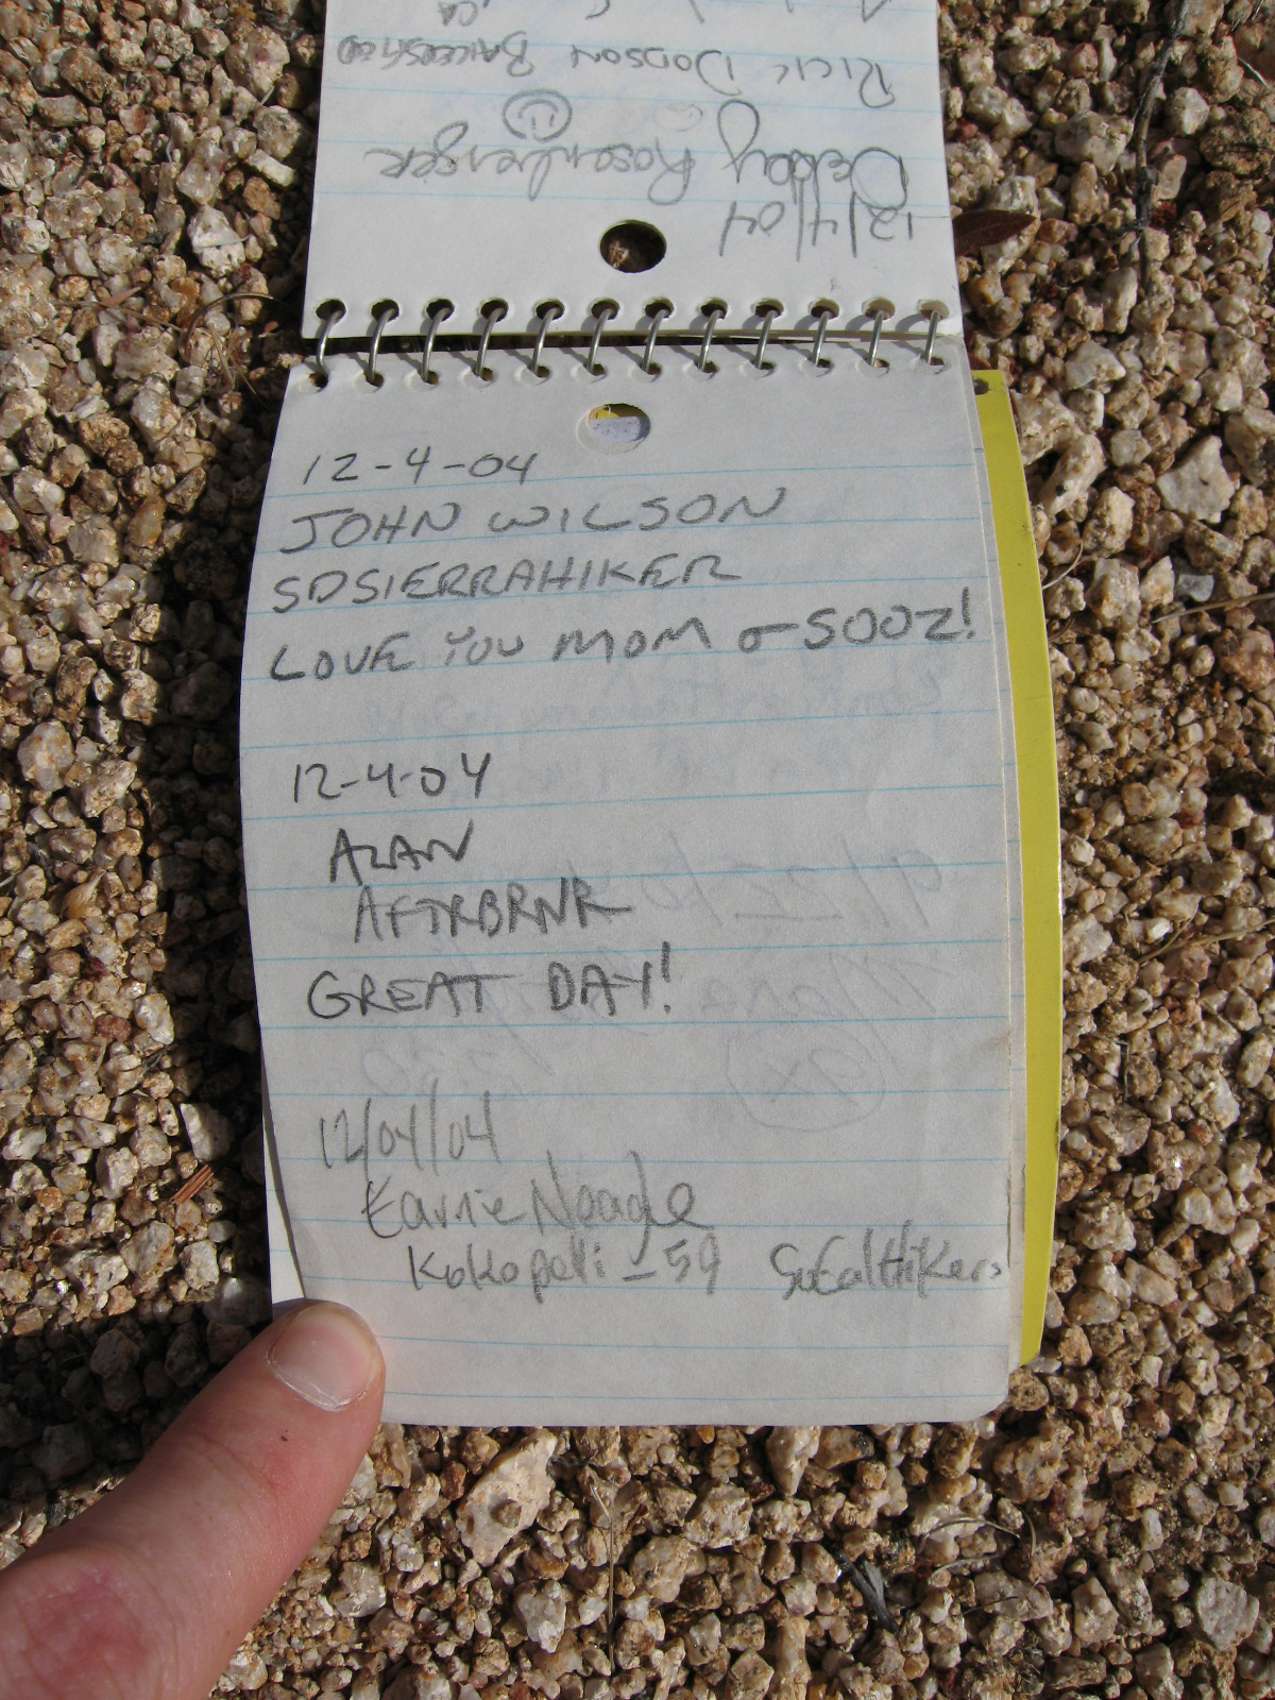 12/4/04
Debby Rosenberger
Rick Dodson Bakersfield
CA
12-4-04
JOHN WILSON
SDSIERRAHIKER
LOVE YOU MOM & SOOZ!
12-4-04
ALAN
AFTRBRNR
GREAT DAY!
12/04/04
Kokopelli-59 SoCalHikers